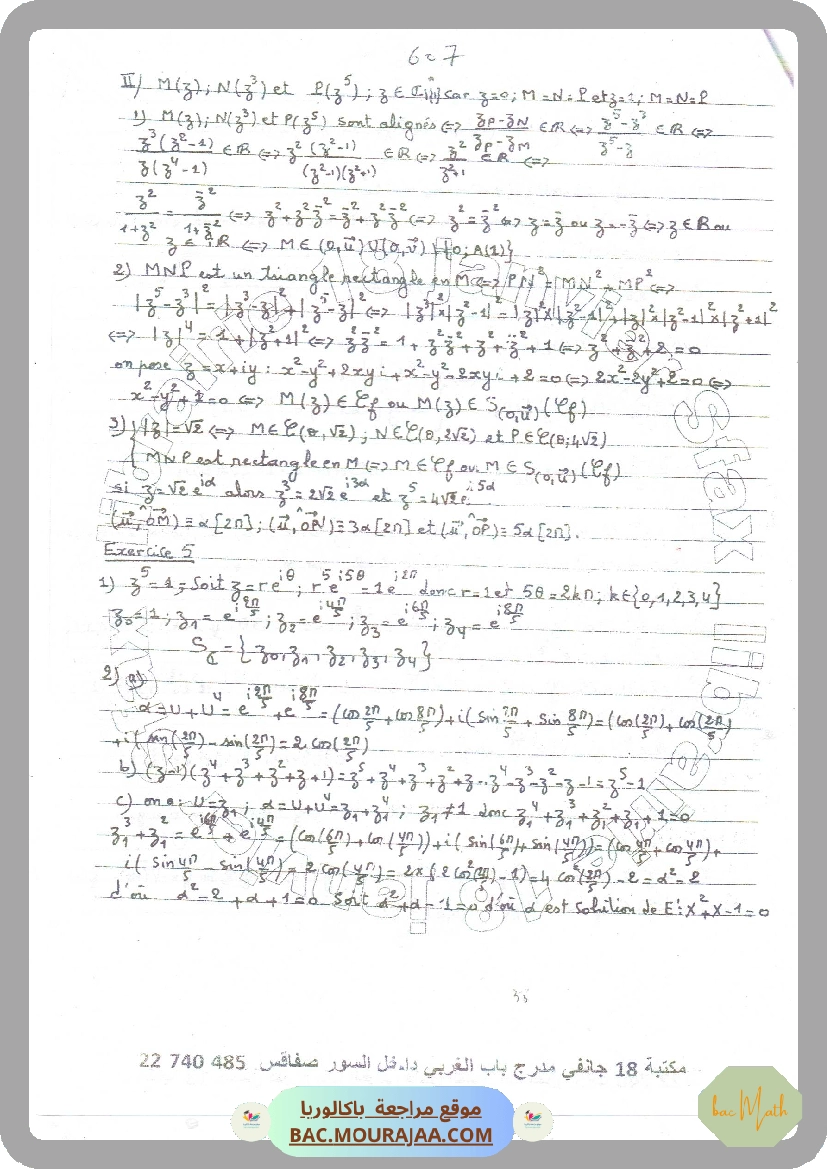 II) M(z) ; N(z³) et P(z⁵) ; z ∈ ℂ car z=0 ; M=N=P et z=1 ; M=N=P
1) M(z) ; N(z³) et P(z⁵) sont alignés ⇔ (zP - zN)/(zP - zM) ∈ ℝ ⇔ (z⁵-z³)/(z⁵-z) ∈ ℝ ⇔
z³(z²-1)/z(z⁴-1) ∈ ℝ ⇔ z²(z²-1)/(z²-1)(z²+1) ∈ ℝ ⇔ z²/(z²+1) ∈ ℝ ⇔
z²/(1+z²) = z̄²/(1+z̄²) ⇔ z²+z²z̄² = z̄²+z²z̄² ⇔ z² = z̄² ⇔ z = z̄ ou z = -z̄ ⇔ z ∈ ℝ ou
z ∈ iℝ ⇔ M ∈ (O,u⃗) ∪ (O,v⃗) \ {O; A(1)}
2) MNP est un triangle rectangle en M ⇔ PN² = MN² + MP² ⇔
|z⁵-z³|² = |z³-z|² + |z⁵-z|² ⇔ |z³|²×|z²-1|² = |z|²×|z²-1|² + |z|²×|z²-1|²×|z²+1|²
⇔ |z|⁴ = 1+|z²+1|² ⇔ z²z̄² = 1 + z²z̄² + z² + z̄² + 1 ⇔ z² + z̄² + 2 = 0
on pose z = x+iy : x²-y²+2xyi + x²-y²-2xyi + 2 = 0 ⇔ 2x²-2y²+2=0 ⇔
x²-y²+1=0 ⇔ M(z) ∈ 𝒞f ou M(z) ∈ S(O,u⃗)(𝒞f)
3) { |z| = √2 ⇔ M ∈ 𝒞(O,√2) ; N ∈ 𝒞(O,2√2) et P ∈ 𝒞(O;4√2)
MNP est rectangle en M ⇔ M ∈ 𝒞f ou M ∈ S(O,u⃗)(𝒞f)
si z = √2 e^(iα) alors z³ = 2√2 e^(i3α) et z⁵ = 4√2 e^(i5α)
(u⃗,OM⃗) ≡ α[2π] ; (u⃗,ON⃗) ≡ 3α[2π] et (u⃗,OP⃗) ≡ 5α[2π].
Exercice 5
1) z⁵ = 1 ; Soit z = r e^(iθ) ; r⁵ e^(i5θ) = 1e^(i2π) donc r=1 et 5θ = 2kπ ; k∈{0,1,2,3,4}
z₀ = 1 ; z₁ = e^(i2π/5) ; z₂ = e^(i4π/5) ; z₃ = e^(i6π/5) ; z₄ = e^(i8π/5)
Sℂ = {z₀, z₁, z₂, z₃, z₄}
2) a)
α = U+U⁴ = e^(i2π/5) + e^(i8π/5) = (cos 2π/5 + cos 8π/5) + i(sin 2π/5 + sin 8π/5) = (cos(2π/5) + cos(2π/5))
+i(sin(2π/5) - sin(2π/5)) = 2 cos(2π/5)
b) (z-1)(z⁴+z³+z²+z+1) = z⁵+z⁴+z³+z²+z-z⁴-z³-z²-z-1 = z⁵-1
c) on a : U = z₁ ; α = U+U⁴ = z₁+z₁⁴ ; z₁ ≠ 1 donc z₁⁴+z₁³+z₁²+z₁+1=0
z₁³+z₁² = e^(i6π/5) + e^(i4π/5) = (cos(6π/5) + cos(4π/5)) + i(sin(6π/5) + sin(4π/5)) = (cos 4π/5 + cos 4π/5) +
i(sin 4π/5 - sin(4π/5)) = 2 cos(4π/5) = 2×(2cos²(2π/5) - 1) = 4 cos²(2π/5) - 2 = α²-2
d'où α²-2+α+1=0 Soit α²+α-1=0 d'où α est solution de E': X²+X-1=0
35
مكتبة 18 جانفي مدرج باب الغربي داخل السور صفاقس 22 740 485
موقع مراجعة باكالوريا
BAC.MOURAJAA.COM
bac Math